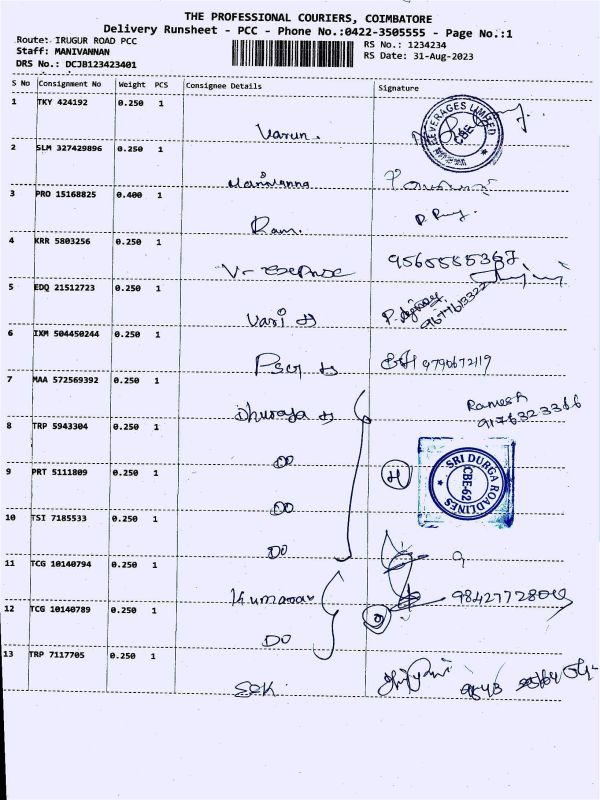 THE PROFESSIONAL COURIERS, COIMBATORE
Delivery Runsheet - PCC - Phone No.:0422-3505555 - Page No.:1
Route: IRUGUR ROAD PCC
RS No.: 1234234
Staff: MANIVANNAN
RS Date: 31-Aug-2023
DRS No.: DCJB123423401
S No Consignment No Weight PCS Consignee Details Signature
1 TKY 424192 0.250 1
Varun. BEVERAGES LIMITED CBE
2 SLM 327429896 0.250 1
3 PRO 15168825 0.400 1
Ram.
4 KRR 5803256 0.250 1
5 EDQ 21512723 0.250 1
Vari
6 IXM 504450244 0.250 1
9790672119
7 MAA 572569392 0.250 1
Dhuraja
Ramesh
9176323366
8 TRP 5943304 0.250 1
DO
9 PRT 5111809 0.250 1
SRI DURGA ROADLINES CBE-62
DO
10 TSI 7185533 0.250 1
DO
11 TCG 10140794 0.250 1
Kumaran
12 TCG 10140789 0.250 1
DO
13 TRP 7117705 0.250 1
SSK